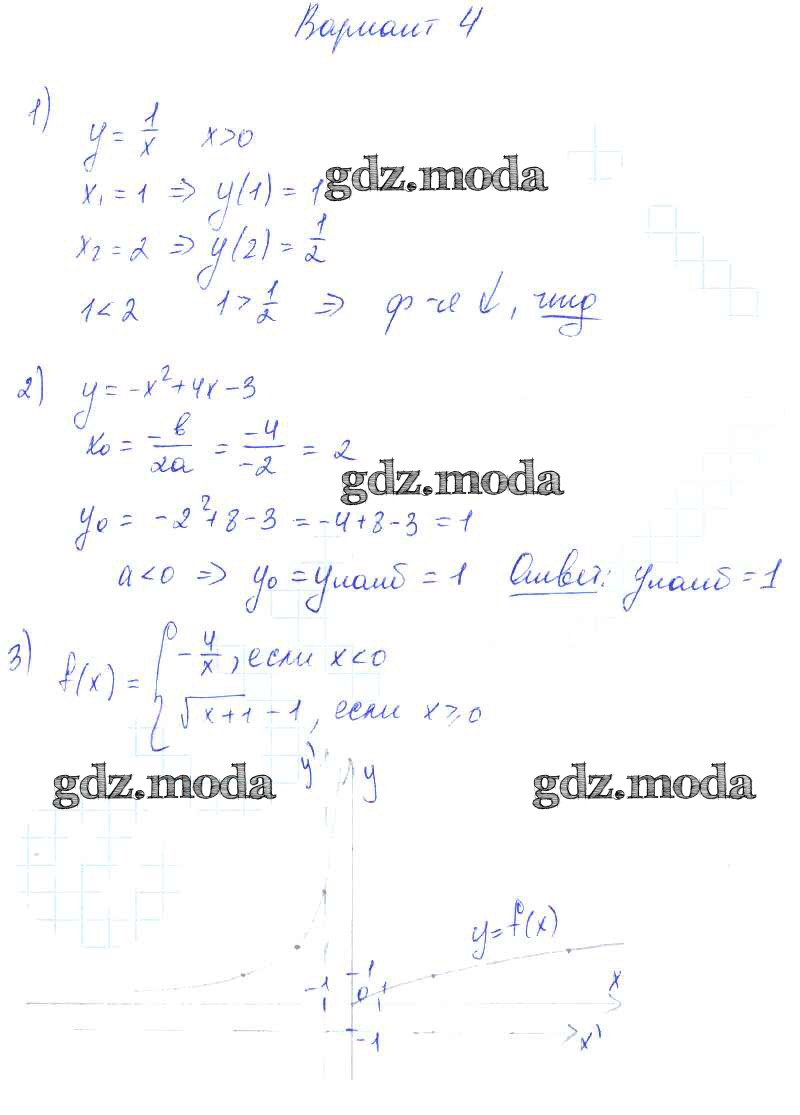 Вариант 4
1)
y = 1/x x>0
x₁ = 1 ⇒ y(1) = 1
gdz.moda
x₂ = 2 ⇒ y(2) = 1/2
1 < 2 1 > 1/2 ⇒ ф-я ↓, чтд
2) y = -x² + 4x - 3
x₀ = -в/2a = -4/-2 = 2
gdz.moda
y₀ = -2² + 8 - 3 = -4 + 8 - 3 = 1
a < 0 ⇒ y₀ = yнаиб = 1 Ответ: yнаиб = 1
3) f(x) = { -4/x, если x < 0
√x+1 - 1, если x ⩾ 0
y' y
gdz.moda gdz.moda
y = f(x)
-1 0 1 1 x
-1 x'